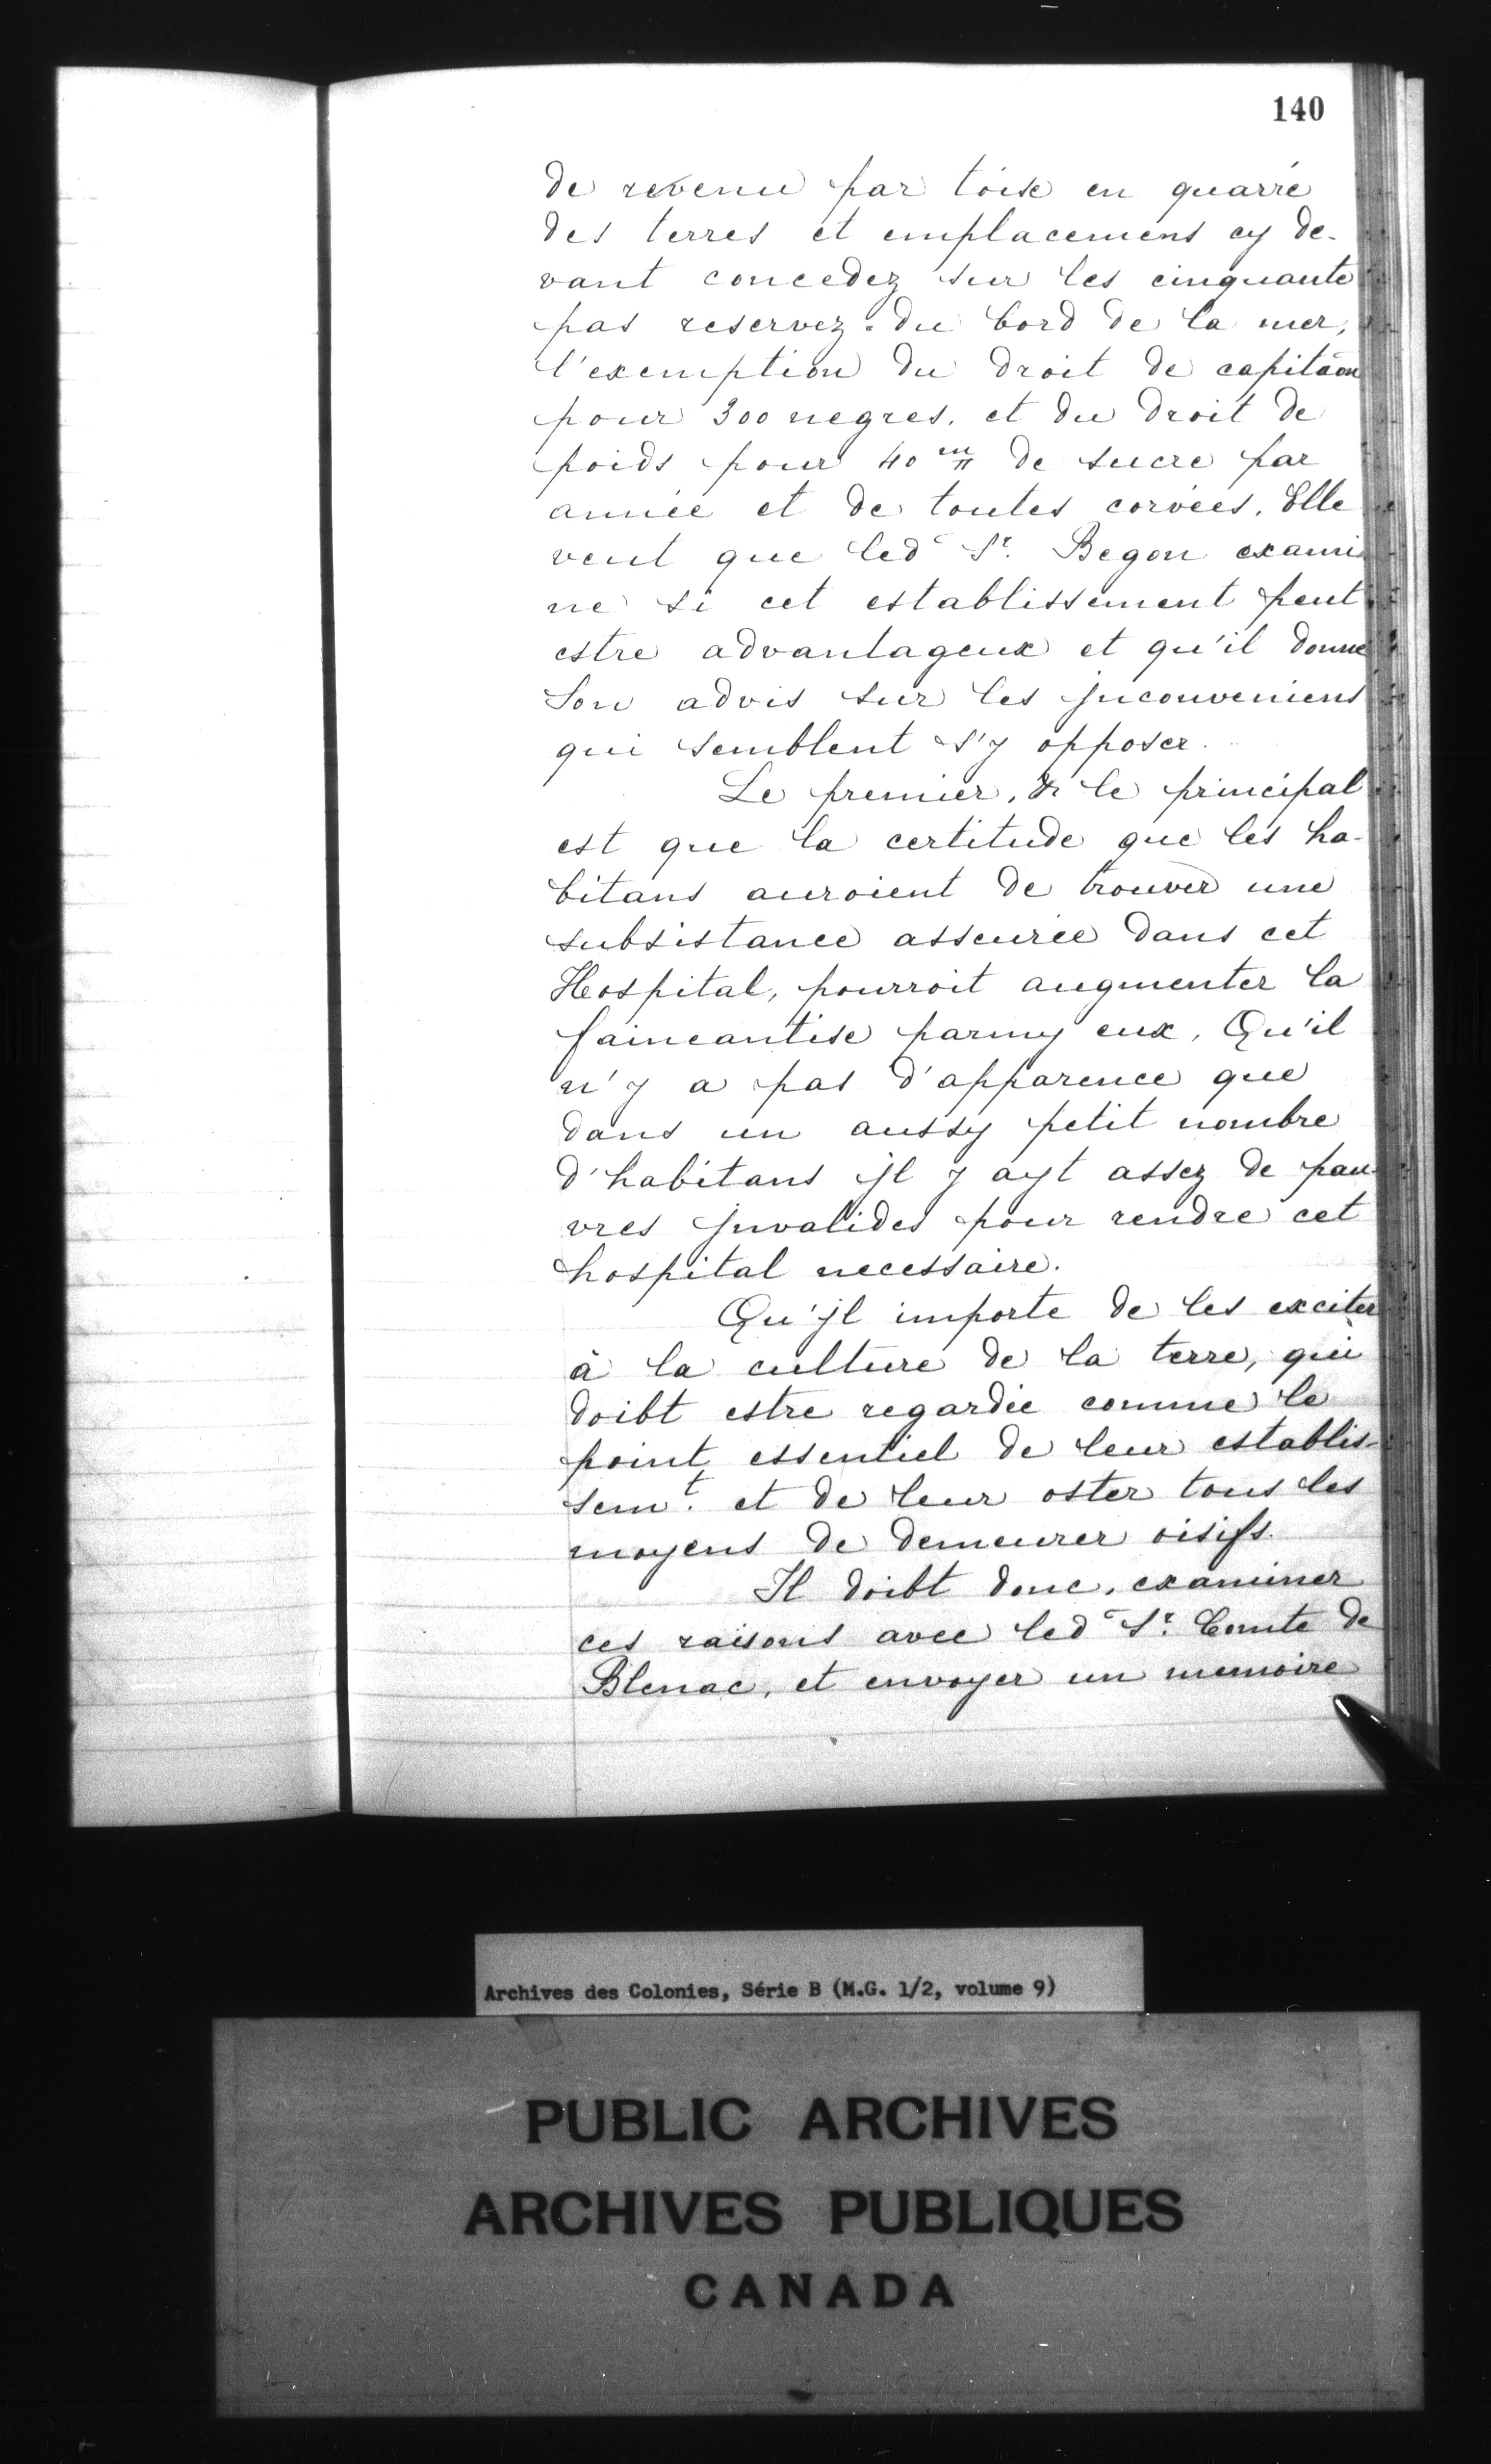 140
de revenu par toise en quarré
des terres et emplacemens cy de-
vant concedez sur les cinquante
pas reservez. du bord de la mer,
l'exemption du droit de capitaõn
pour 300 negres. et du droit de
poids pour 40 m# de sucre par
année et de toutes corvées. Elle
veut que led. Sr. Begon exami
ne si cet establissement peut
estre advantageux et qu'il donne
son advis sur les jnconveniens
qui semblent s'y opposer.
Le premier, & le principal
est que la certitude que les ha-
bitans auroient de trouver une
subsistance asseurée dans cet
Hospital, pourroit augmenter la
faineantise parmy eux, Qu'il
n'y a pas d'apparence que
dans un aussy petit nombre
d'habitans jl y ayt assez de pau-
vres jnvalides pour rendre cet
hospital necessaire.
Qu'jl importe de les exciter
à la culture de la terre, qui
doibt estre regardée comme le
point essentiel de leur establis-
semt. et de leur oster tous les
moyens de demeurer oisifs.
Il doibt donc, examiner
ces raisons avec led. Sr. Comte de
Blenac, et envoyer un memoire
Archives des Colonies, Série B (M.G. 1/2, volume 9)
PUBLIC ARCHIVES
ARCHIVES PUBLIQUES
CANADA